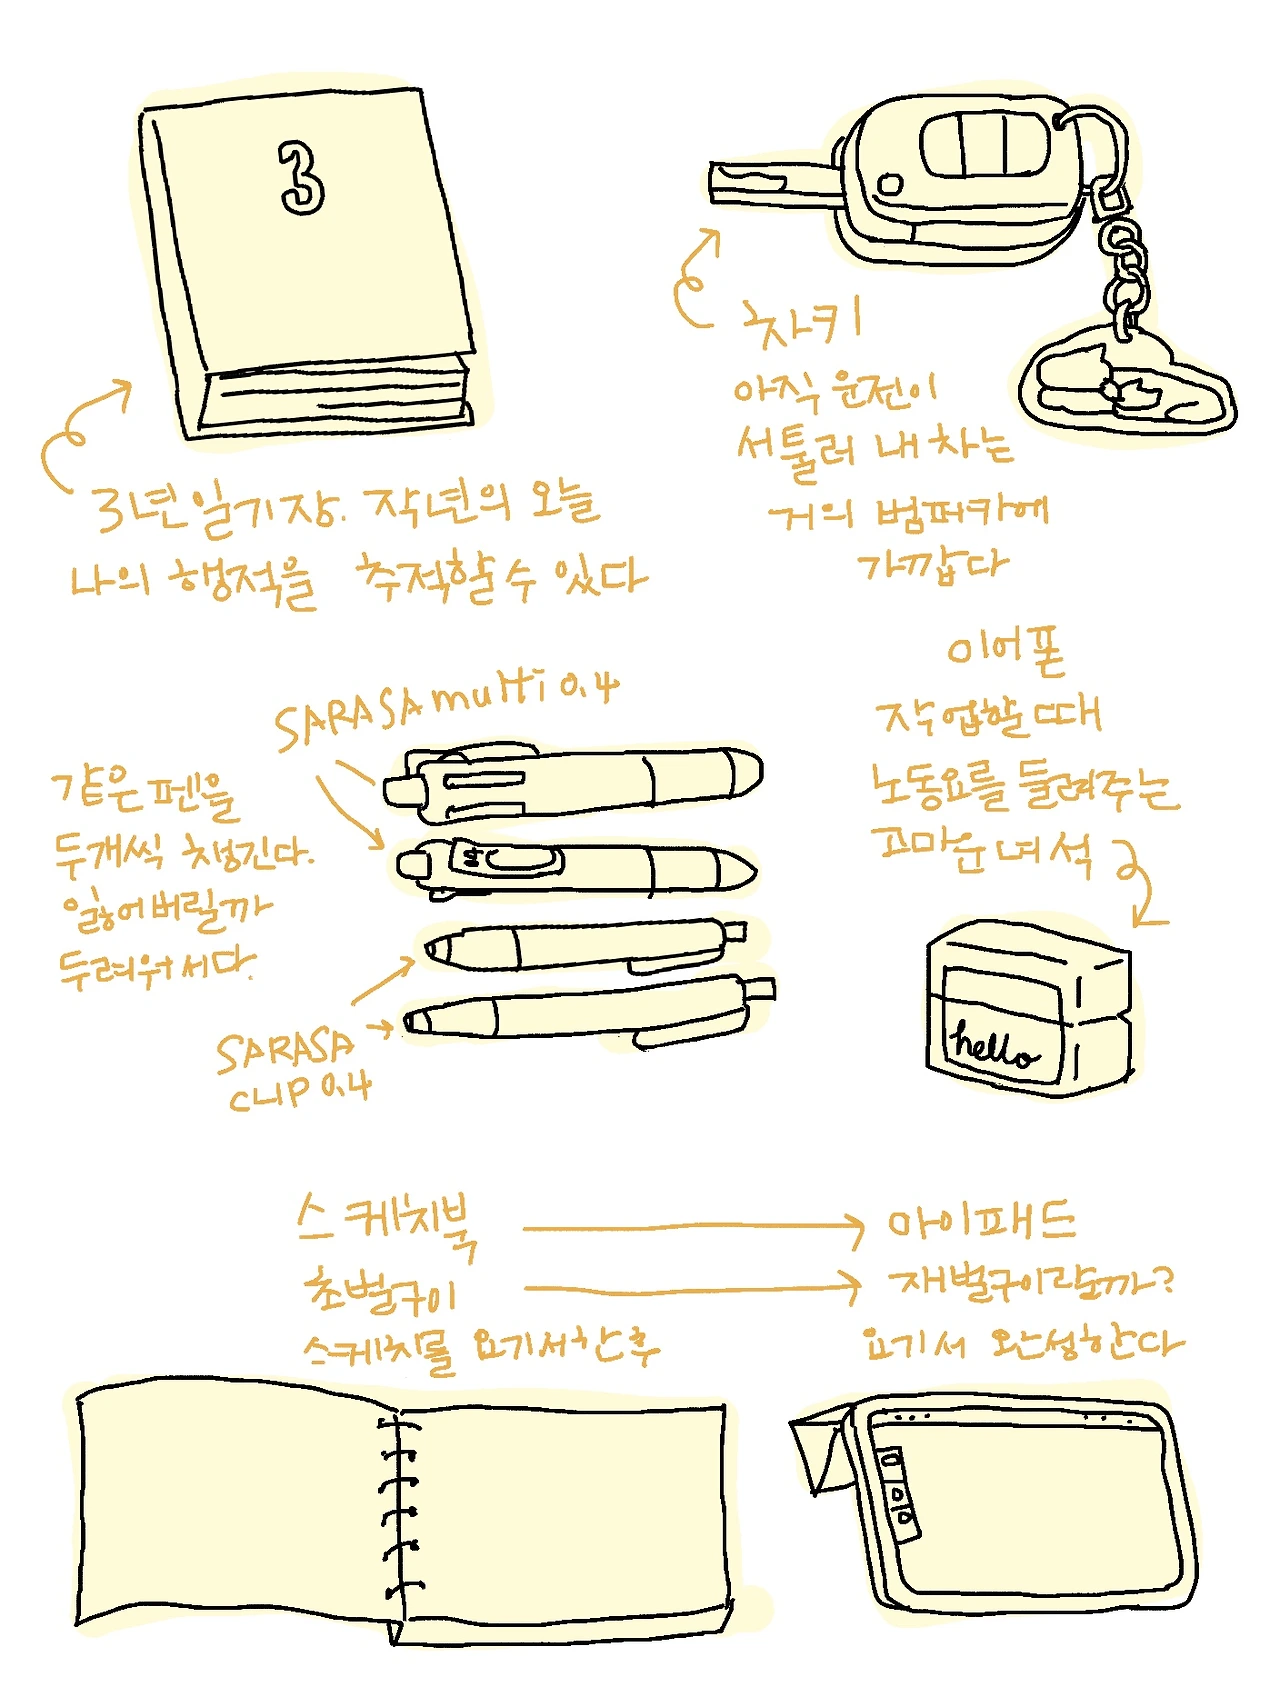 3
3년 일기장. 작년의 오늘
나의 행적을 추적할 수 있다
차키
아직 운전이
서툴러 내 차는
거의 범퍼카에
가깝다
SARASA multi 0.4
같은 펜을
두개씩 챙긴다.
잃어버릴까
두려워서다.
0.4
SARASA
CLIP 0.4
이어폰
작업할 때
노동요를 들려주는
고마운 녀석
hello
스케치북
초벌구이
스케치를 요기서 한 후
아이패드
재벌구이랄까?
요기서 완성한다